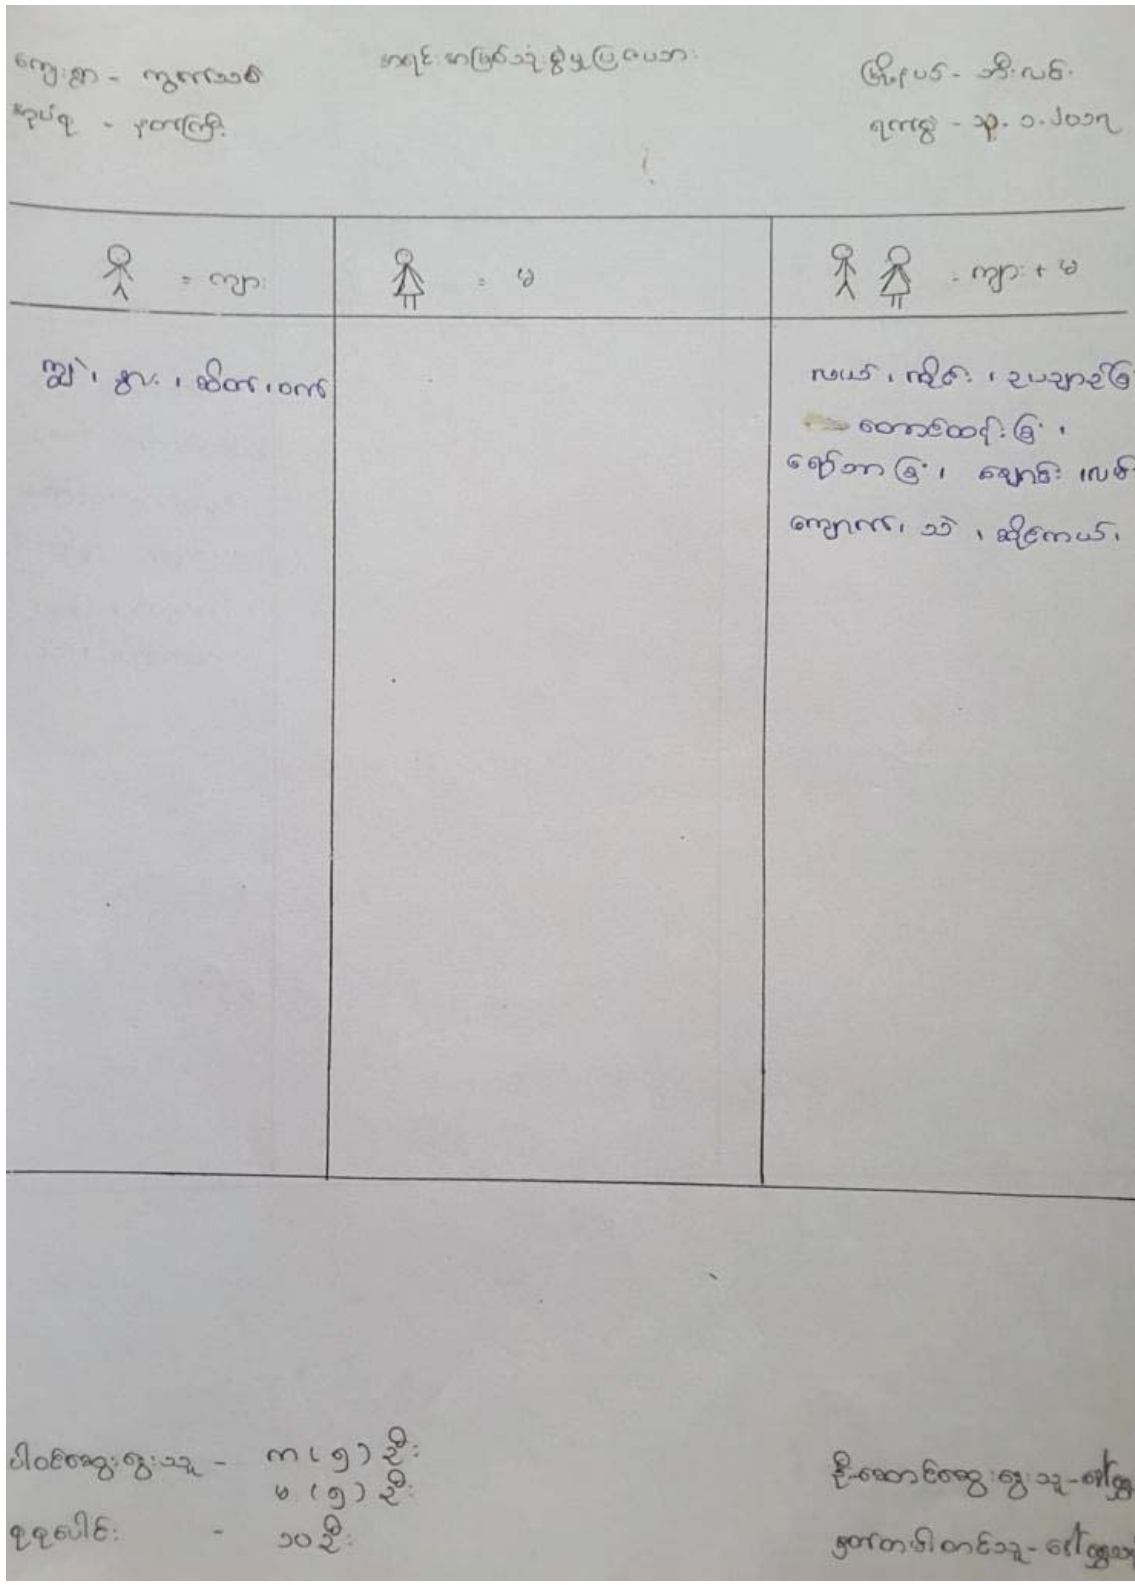 ကျေးရွာ - ကွက်သစ်
အရင်းအမြစ်သုံးစွဲမှုပြဇယား
မြို့နယ် - ဘီးလင်း
အုပ်စု - မုတ်ကြီး
ရက်စွဲ - ၁၃.၁.၂၀၁၇
= ကျား
= မ
= ကျား + မ
ကျွဲ၊ နွား၊ ဆိတ်၊ ဝက်
လယ်၊ ကိုင်း၊ ဥယျာဉ်ခြံ
တောင်ထန်းခြံ၊
ရော်ဘာခြံ၊ ချောင်း၊ လမ်း
ကျောက်၊ သဲ၊ ဆိုင်ကယ်၊
ပါဝင်ဆွေးနွေးသူ - က (၅) ဦး
မ (၅) ဦး
စုစုပေါင်း - ၁၀ ဦး
ဦးဆောင်ဆွေးနွေးသူ - ဒေါ်
မှတ်တမ်းတင်သူ - ဒေါ်